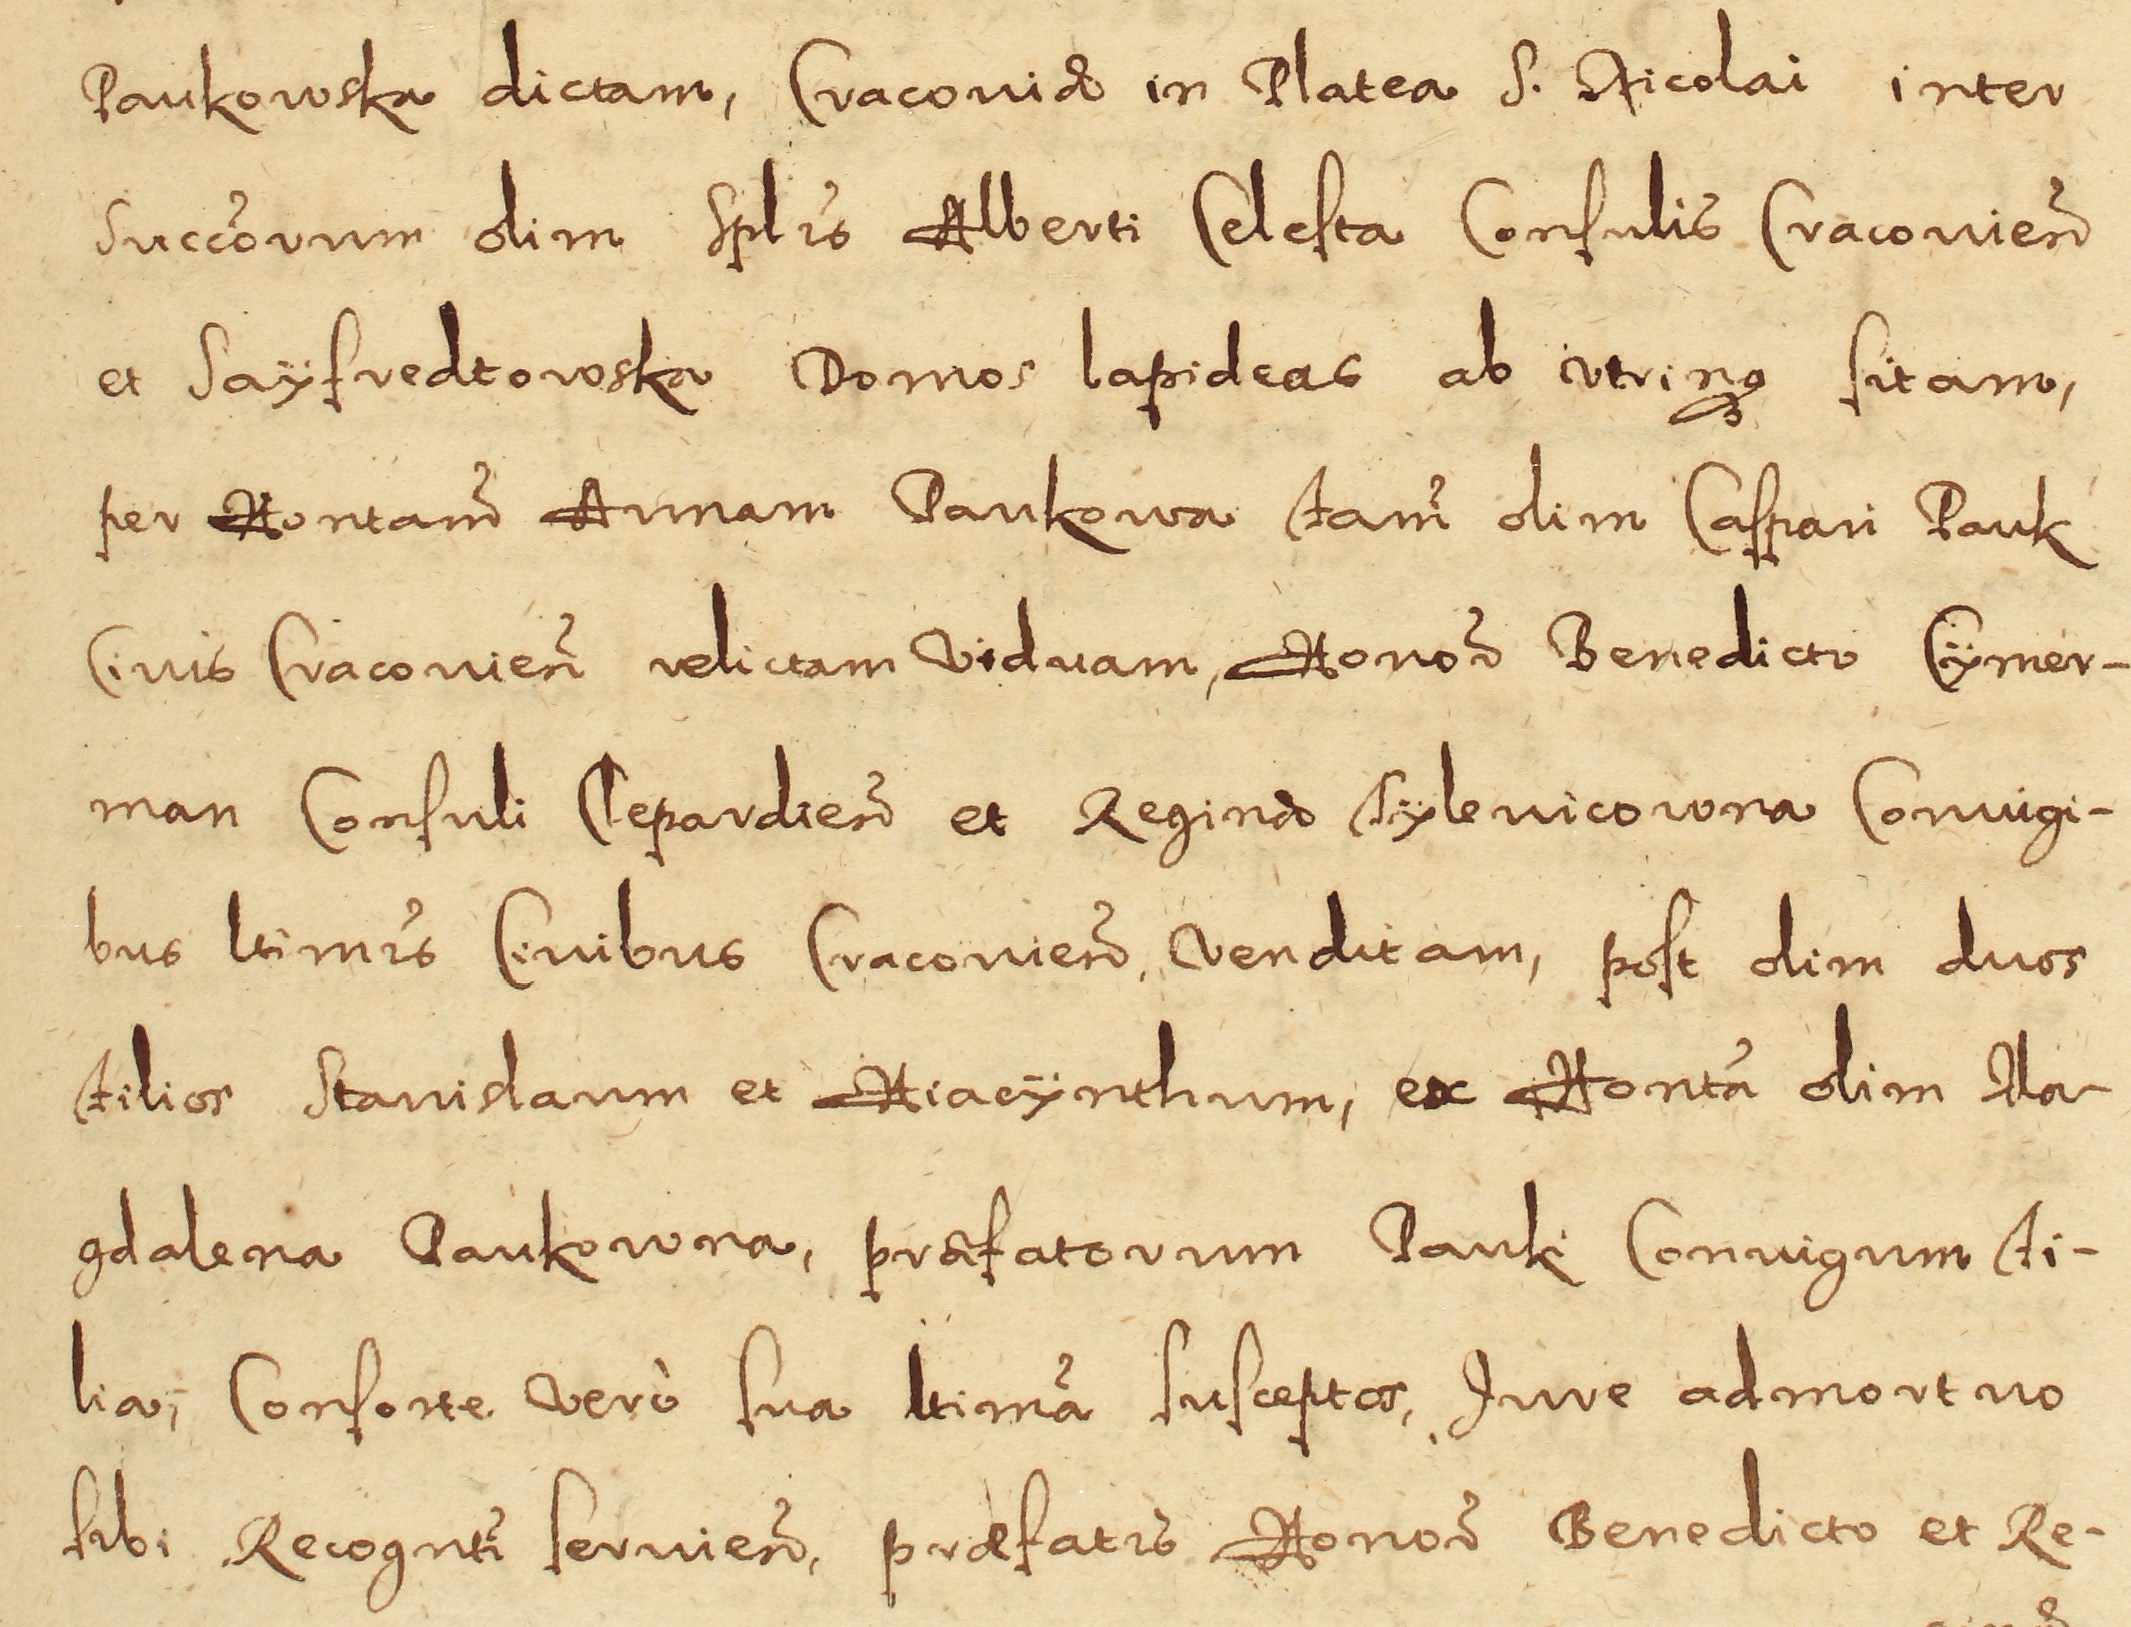 Paukowska dictam, Cracoviæ in Platea S. Nicolai inter
Succorum olim Splis Alberti Celesta Consulis Cracovien
et Sayfredtowska Domos lapideas ab utrinq sitam,
per Hontam Annam Paukowa fam olim Caspari Pauk
Civis Cracovien relictam Viduam, Honor Benedicto Cÿmer-
man Consuli Clepardien et Reginæ Fÿlevicowna Coniugi-
bus ltimis Civibus Cracovien, Venditam, post olim duos
filios Stanislaum et Hiacÿnthum, ex Honta olim Ma-
gdalena Paukowna, præfatorum Pauk Coniugum fi-
lia, Consorte Verò sua ltima susceptos, Iure admortuo
sibi Recognti servien, præfatis Honor Benedicto et Re-